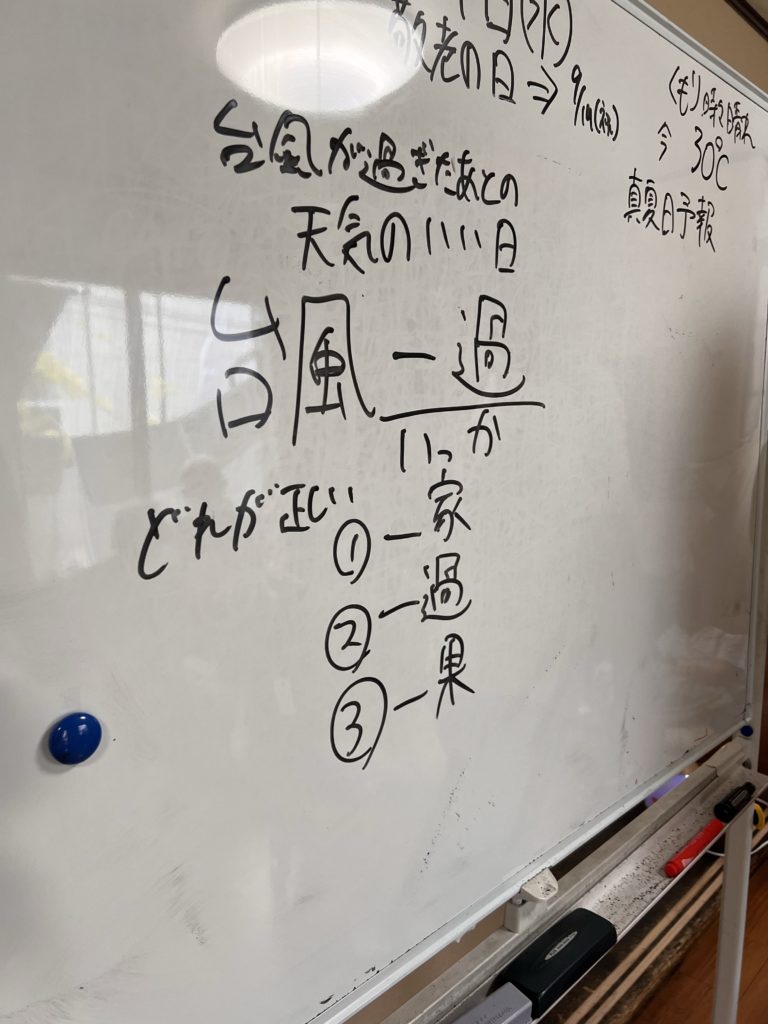 日(水)
敬老の日⇒9/
くもり時々晴れ
今 30℃
真夏日予報
台風が過ぎたあとの
天気のいい日
台風一過
いっか
どれが正しい
①一家
②一過
③一果